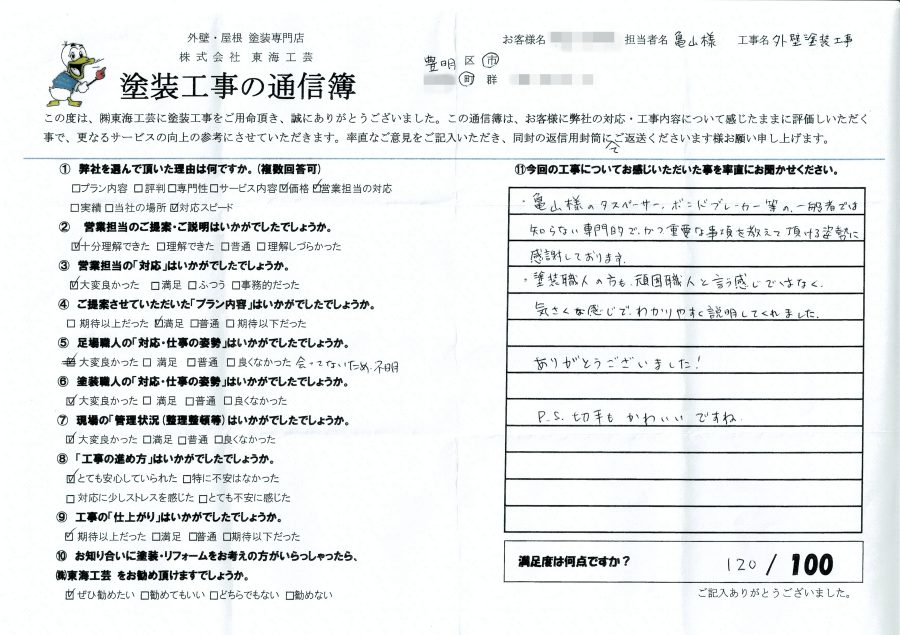 外壁・屋根 塗装専門店
株式会社 東海工芸
塗装工事の通信簿
お客様名 担当者名 亀山様 工事名 外壁塗装工事
豊明 区 市
町 群
この度は、㈱東海工芸に塗装工事をご用命頂き、誠にありがとうございました。この通信簿は、お客様に弊社の対応・工事内容について感じたままに評価しいただく
事で、更なるサービスの向上の参考にさせていただきます。率直なご意見をご記入いただき、同封の返信用封筒にご返送くださいます様お願い申し上げます。
① 弊社を選んで頂いた理由は何ですか。(複数回答可)
□プラン内容 □評判 □専門性 □サービス内容 ☑価格 ☑営業担当の対応
□実績 □当社の場所 ☑対応スピード
② 営業担当のご提案・ご説明はいかがでしたでしょうか。
☑十分理解できた □理解できた □普通 □理解しづらかった
③ 営業担当の「対応」はいかがでしたでしょうか。
☑大変良かった □満足 □ふつう □事務的だった
④ ご提案させていただいた「プラン内容」はいかがでしたでしょうか。
□期待以上だった ☑満足 □普通 □期待以下だった
⑤ 足場職人の「対応・仕事の姿勢」はいかがでしたでしょうか。
☑大変良かった □満足 □普通 □良くなかった 会ってないため、不明
⑥ 塗装職人の「対応・仕事の姿勢」はいかがでしたでしょうか。
☑大変良かった □満足 □普通 □良くなかった
⑦ 現場の「管理状況(整理整頓等)はいかがでしたでしょうか。
☑大変良かった □満足 □普通 □良くなかった
⑧ 「工事の進め方」はいかがでしたでしょうか。
☑とても安心していられた □特に不安はなかった
□対応に少しストレスを感じた □とても不安に感じた
⑨ 工事の「仕上がり」はいかがでしたでしょうか。
☑期待以上だった □満足 □普通 □期待以下だった
⑩ お知り合いに塗装・リフォームをお考えの方がいらっしゃったら、
㈱東海工芸 をお勧め頂けますでしょうか。
☑ぜひ勧めたい □勧めてもいい □どちらでもない □勧めない
⑪今回の工事についてお感じいただいた事を率直にお聞かせください。
・亀山様のタスペーサー、ボンドブレーカー等の、一般者では
知らない専門的で、かつ重要な事項を教えて頂ける姿勢に
感謝しております。
・塗装職人の方も、頑固職人と言う感じではなく、
気さくな感じで、わかりやすく説明してくれました。
ありがとうございました!
P.S. 切手も かわいい ですね。
満足度は何点ですか? 120 / 100
ご記入ありがとうございました。